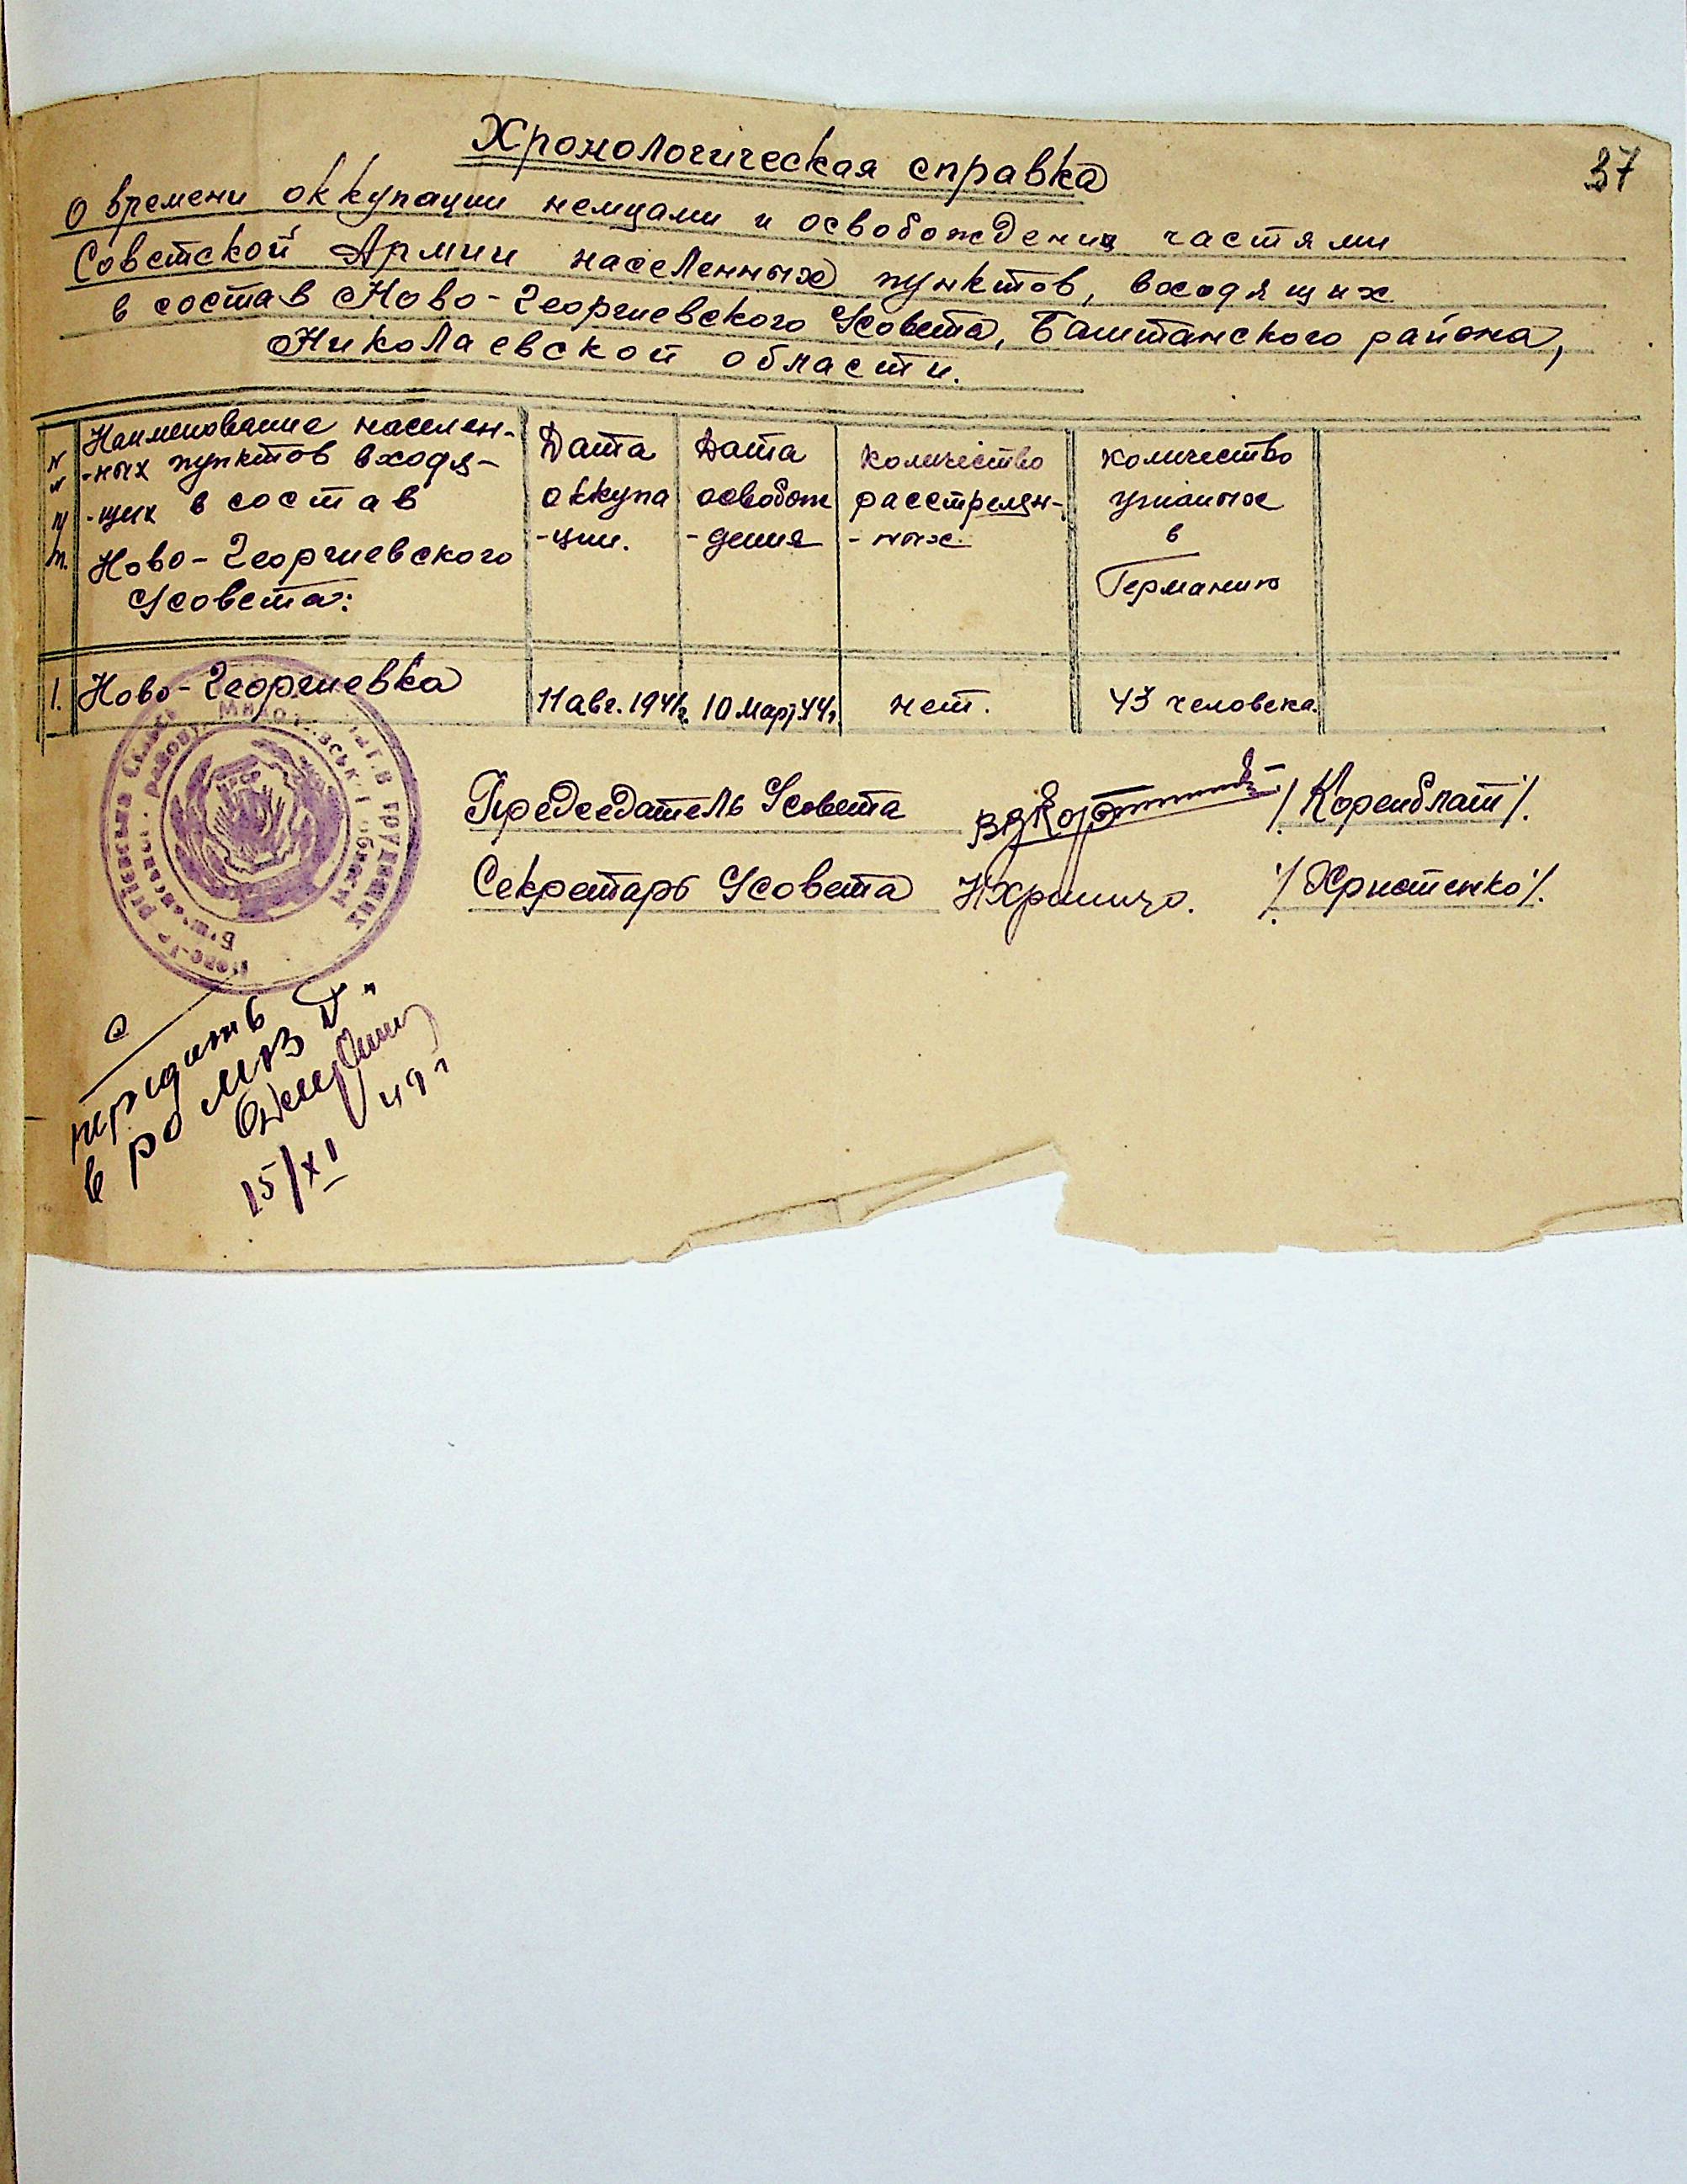 37
Хронологическая справка
О времени оккупации немцами и освобождения частями
Советской Армии населенных пунктов, входящих
в состав Ново-Георгиевского С/совета, Баштанского района,
Николаевской области.
NN п/п. Наименование населен-
-ных пунктов входя-
-щих в состав
Ново-Георгиевского
С/совета:
Дата
оккупа
-ции.
Дата
освобож
-дения
количество
расстрелян-
-ных.
количество
угнанных
в
Германию
1. Ново-Георгиевка 11 авг. 1941г. 10 март 44г. нет. 43 человека.
Председатель С/совета /Коренблат/.
Секретарь С/совета /Христенко/.
передать
в РО МВД
15/XI 49 г